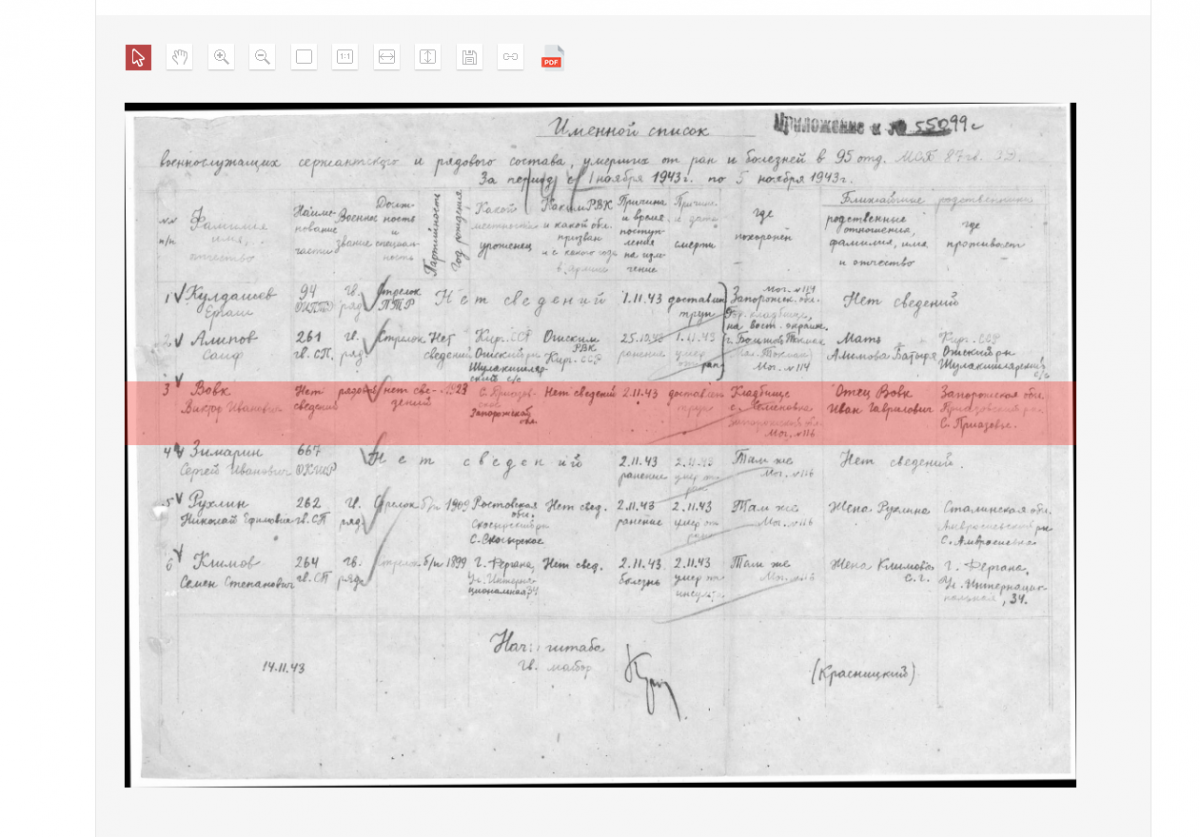 1:1
PDF
Именной список
Приложение к № 55099с
военнослужащих сержантского и рядового состава, умерших от ран и болезней в 95 отд. МСБ 87 гв. СД.
За период с 1 ноября 1943 г. по 5 ноября 1943 г.
№№ п/п
Фамилия имя, отчество
Наиме-нование части
Военное звание
Должность и специальность
Партийность
Год рождения
Какой местности уроженец
Каким РВК и какой обл. призван и с какого года в армии
Причина и время поступ-ления на изле-чение
Причина и дата смерти
где похоронен
Ближайшие родственники
родственные отношения, фамилия, имя и отчество
где проживает
1 Кулдашев 94 гв. Стрелок Нет сведений 1.11.43 доставлен Мог. №114 Нет сведений
Ергаш ряд. ПТР труп Запорожск. обл.
на вост. окраине
2 Алипов 261 гв. Стрелок Нет Кирг. ССР Ошским 25.10.43 1.11.43 Мать Кирг. ССР
Саиф гв. СП. ряд. сведений Ошский р-н РВК Кирг. ССР ранение умер от ран Алимова Ошский р-н
Мог. №114
3 Вовк Нет рядовой нет све- 1923 Нет сведений 2.11.43 доставлен Кладбище Отец Вовк Запорожская обл.
Виктор Иванович сведений дений Запорожская обл. труп с. Семеновка Иван Гаврилович Приазовский р-н
Мог. №116 с. Приазовье.
4 Зимарин 667 Нет сведений 2.11.43 2.11.43 Там же Нет сведений.
Сергей Иванович ранение умер от Мог. №116
5 Рухлин 262 гв. Стрелок б/п 1909 Ростовская Нет свед. 2.11.43 2.11.43 Там же Жена Рухлина Сталинская обл.
Николай Ефимович гв. СП ряд. обл. ранение умер от Мог. №116 Амвросиевский р-н
с. Скосырское с. Амвросиевка
6 Климов 264 гв. стрелок б/п 1899 г. Фергана, Нет свед. 2.11.43 2.11.43 Там же Жена Климова г. Фергана,
Семен Степанович гв. СП ряд. ул. Интерна- болезнь умер от Мог. №116 с.г. ул. Интернацио-
циональная 34 инсульта нальная, 34.
Нач. штаба
14.11.43 гв. майор (Красницкий)